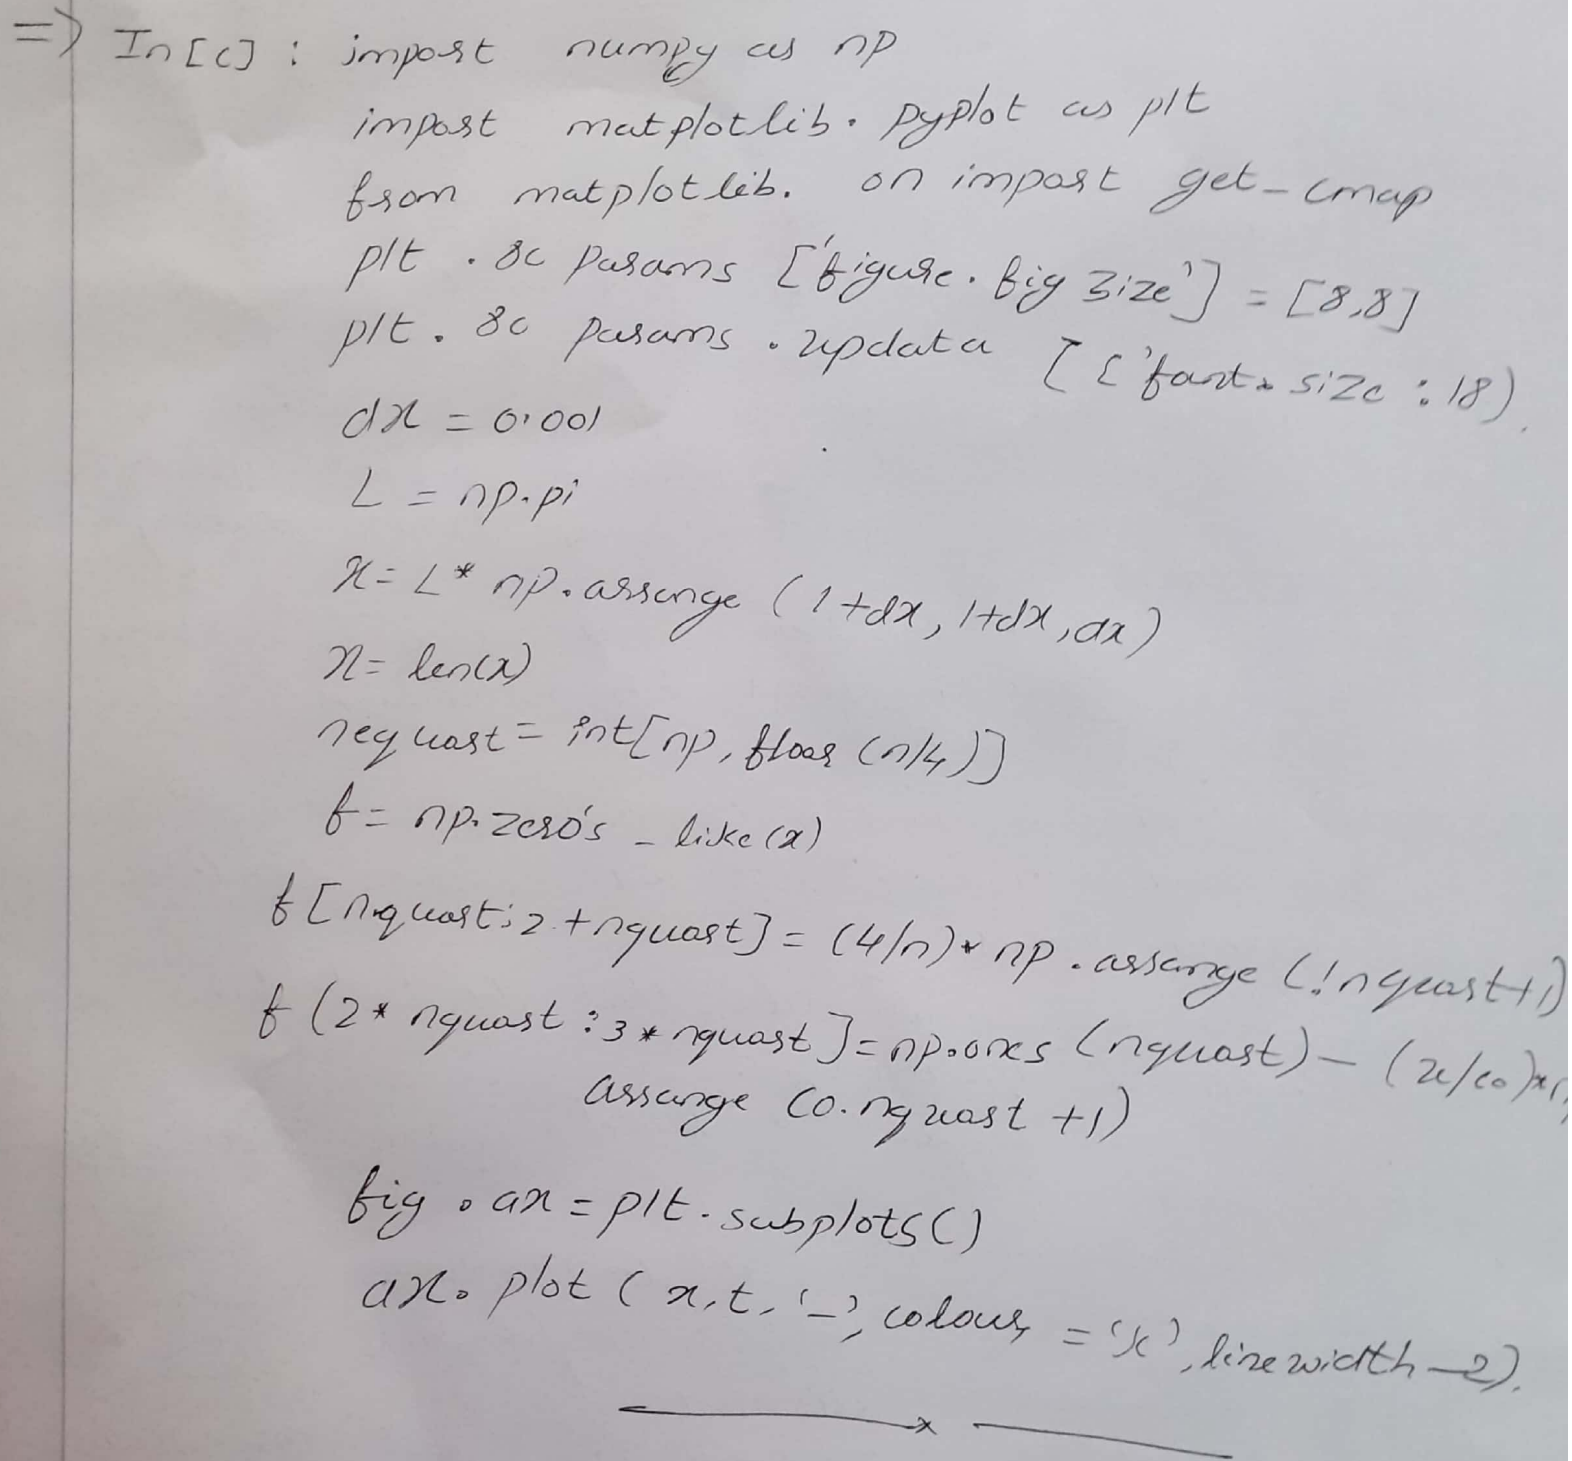 => In[c] : import numpy as np
import matplotlib. pyplot as plt
from matplotlib. on import get-cmap
plt . rc params ['figure. fig size'] = [8,8]
plt. rc params . updata [ ['font. size : 18)
dx = 0.001
L = np.pi
x = L* np.arrange (1+dx, 1+dx, dx)
n = len(x)
nequart = int[np, floor (n/4)]
f = np.zero's - like (x)
f [nquart:2+nquart] = (4/n)* np . arrange (!nquart+1)
f (2* nquart : 3* nquart ] = np.ones (nquart) -
arrange (0.nquart +1)
fig . ax = plt. subplots ()
ax. plot ( x,t, '-', colour = 'k', linewidth -2).